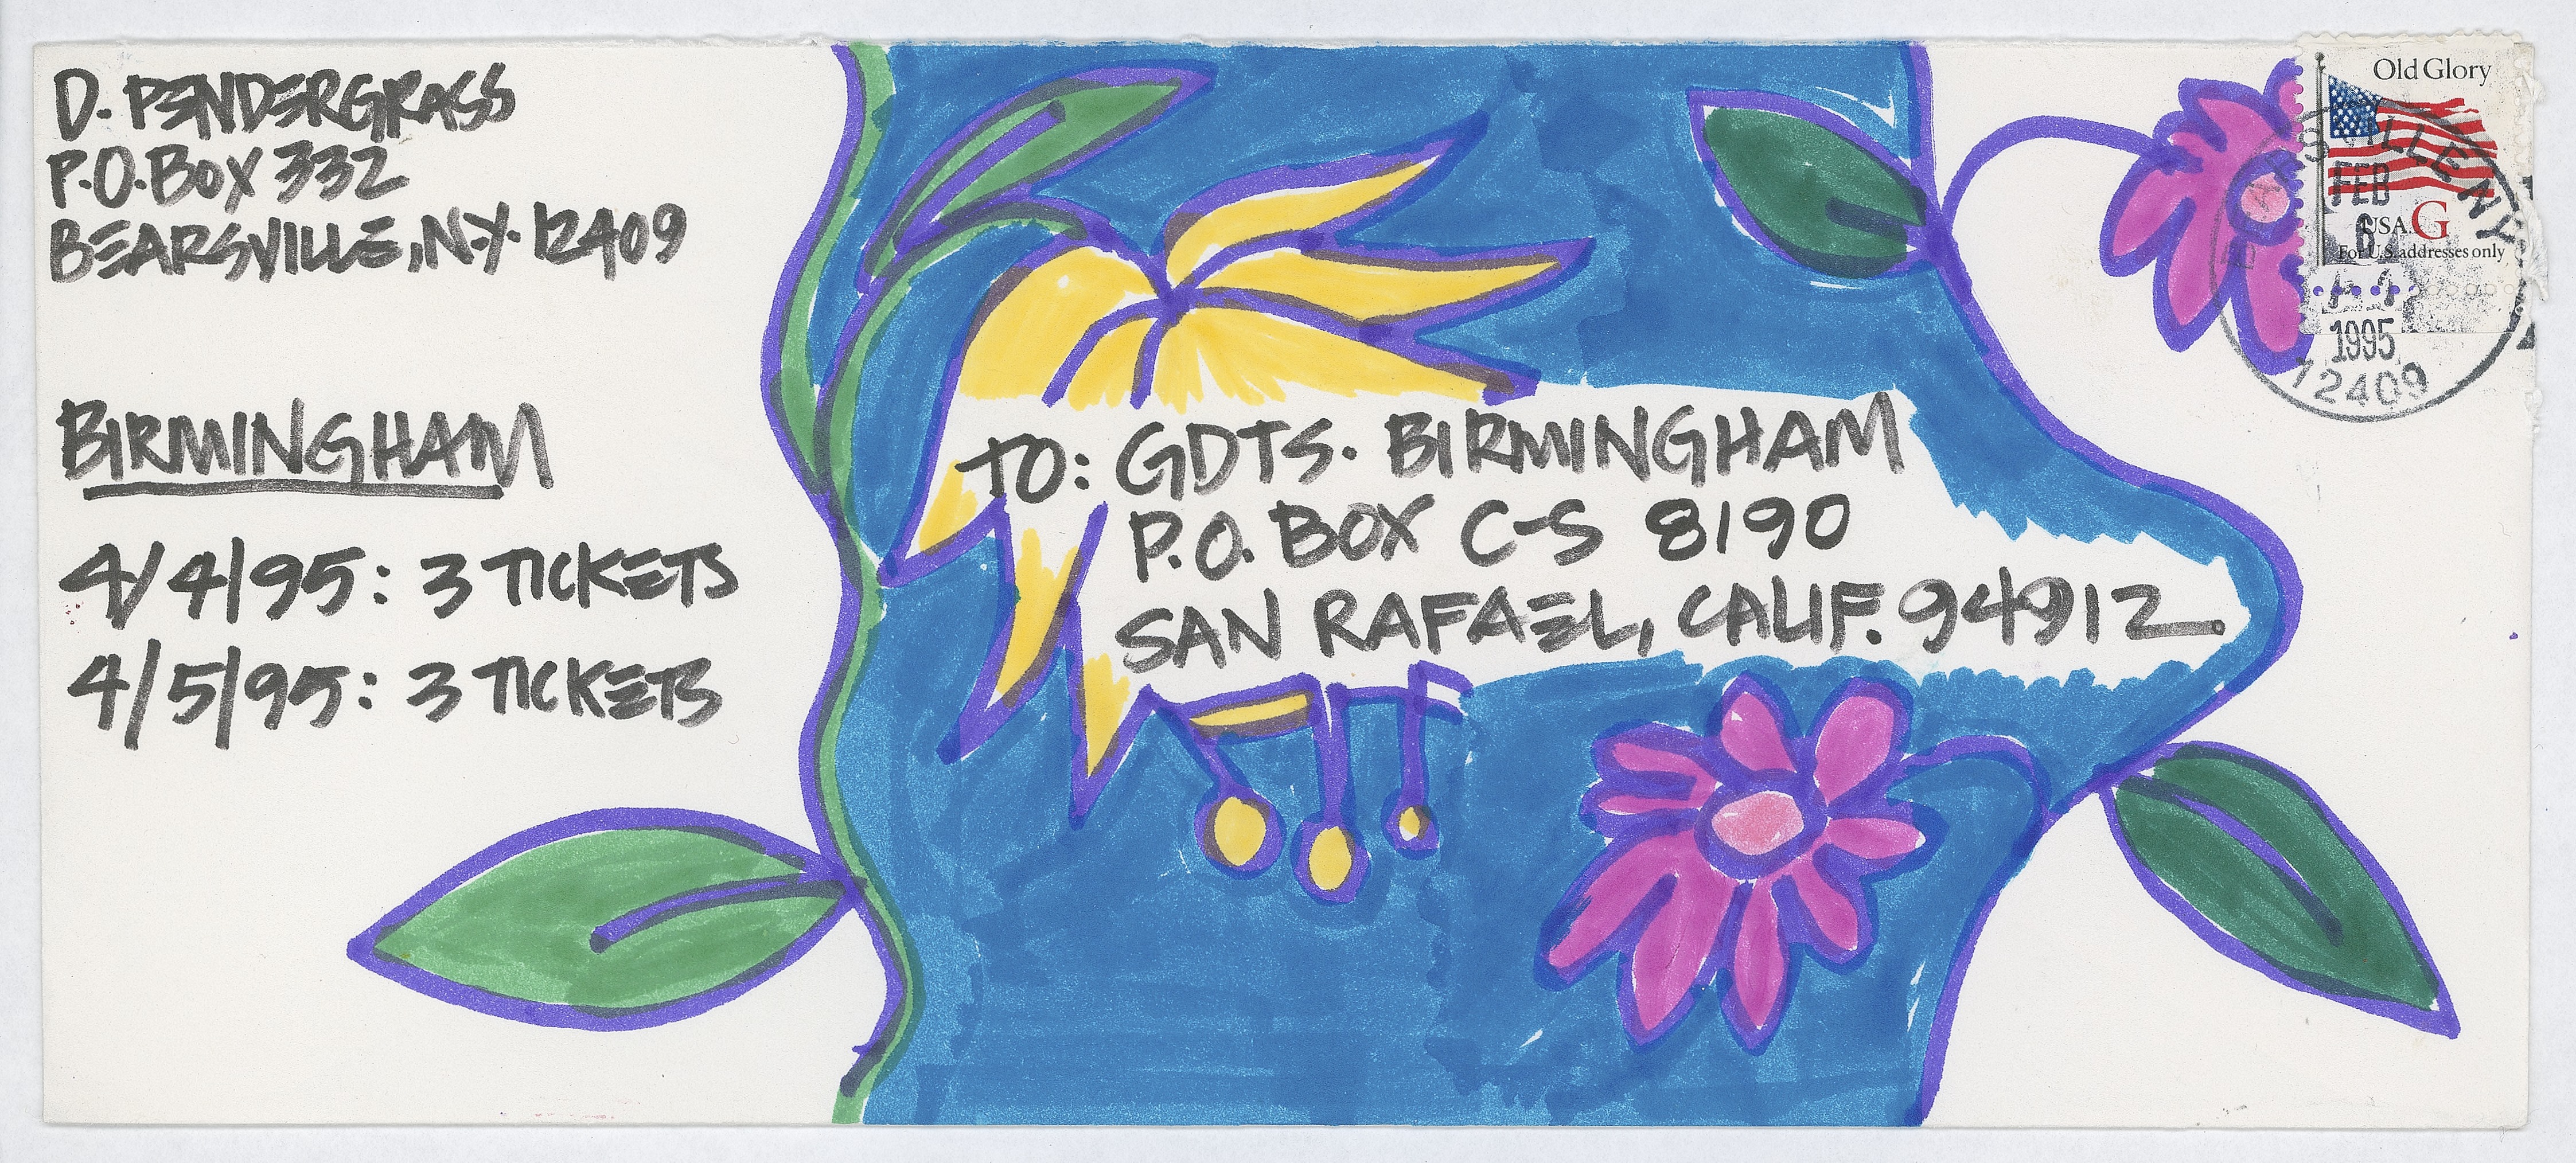 D. PENDERGRASS
P.O. BOX 332
BEARSVILLE, N.Y. 12409
BIRMINGHAM
4/4/95: 3 TICKETS
4/5/95: 3 TICKETS
TO: GDTS. BIRMINGHAM
P.O. BOX C-S 8190
SAN RAFAEL, CALIF. 94912
Old Glory
USA G
For U.S. addresses only
BEARSVILLE NY
FEB
6
1995
12409